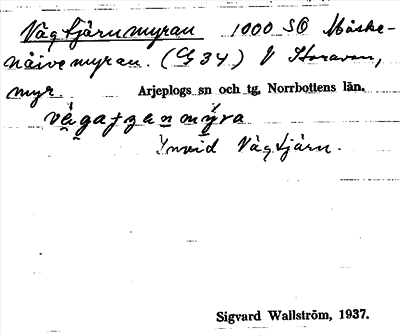 Vågtjärnmyran 1000 SO Måske-
näivemyran. (Gg 34) V Storavan,
myr. Arjeplogs sn och tg, Norrbottens län.
vågatzan mýra
Invid Vågtjärn.
Sigvard Wallström, 1937.